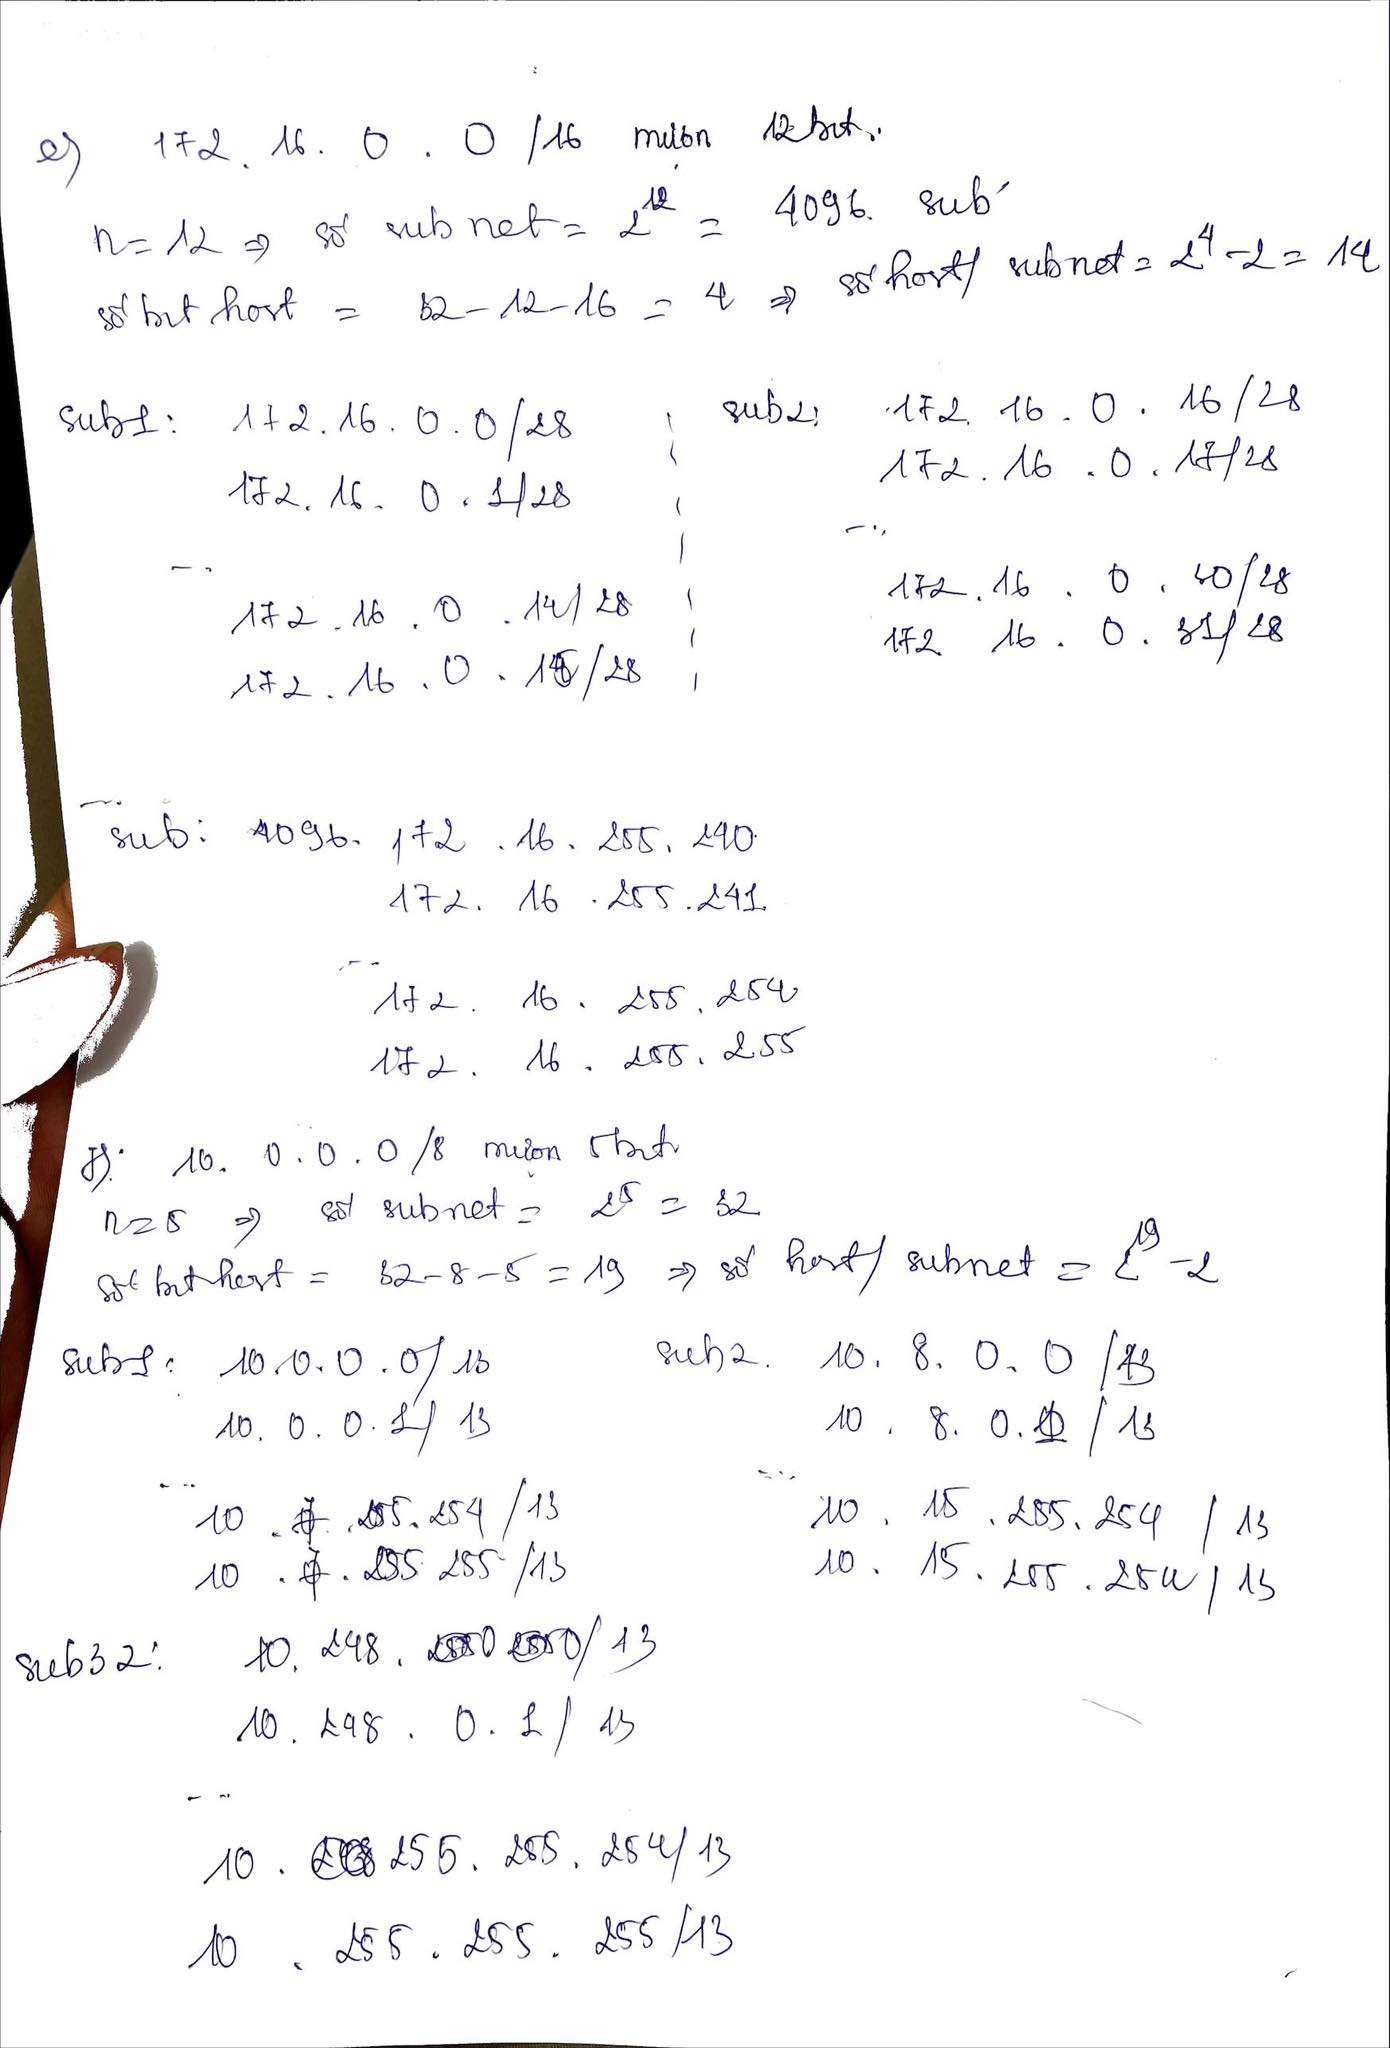 e) 172.16.0.0/16 mượn 12 bit.
n=12 ⇒ số subnet = 2^12 = 4096 sub
số bit host = 32-12-16 = 4 ⇒ số host/subnet = 2^4-2 = 14
sub1: 172.16.0.0/28
172.16.0.1/28
...
172.16.0.14/28
172.16.0.15/28
sub2: 172.16.0.16/28
172.16.0.17/28
...
172.16.0.30/28
172 16.0.31/28
...
sub: 4096. 172.16.255.240
172.16.255.241
...
172.16.255.254
172.16.255.255
f): 10.0.0.0/8 mượn 5 bit
n=5 ⇒ số subnet = 2^5 = 32
số bit host = 32-8-5 = 19 ⇒ số host/subnet = 2^19-2
sub1: 10.0.0.0/13
10.0.0.1/13
...
10.7.255.254/13
10.7.255 255/13
sub2. 10.8.0.0/13
10.8.0.1/13
...
10.15.255.254/13
10.15.255.254/13
sub32: 10.248. /13
10.248.0.1/13
...
10.255.255.254/13
10.255.255.255/13